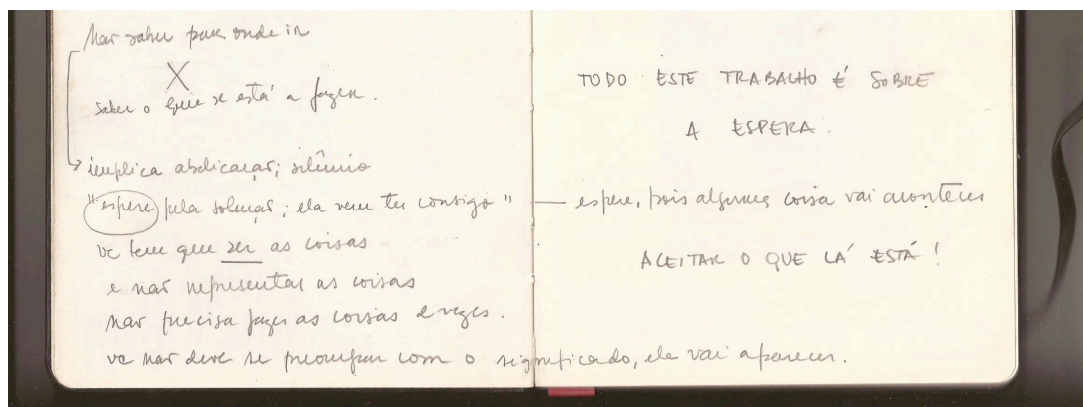 não saber para onde ir
X
saber o que se está a fazer.
implica abdicação; silêncio
"espere pela solução; ela vem ter consigo" — espere, pois alguma coisa vai acontecer
vc tem que ser as coisas
e não representar as coisas
não precisa fazer as coisas 2 vezes.
vc não deve se preocupar com o significado, ele vai aparecer.
TODO ESTE TRABALHO É SOBRE
A ESPERA.
ACEITAR O QUE LÁ ESTÁ!